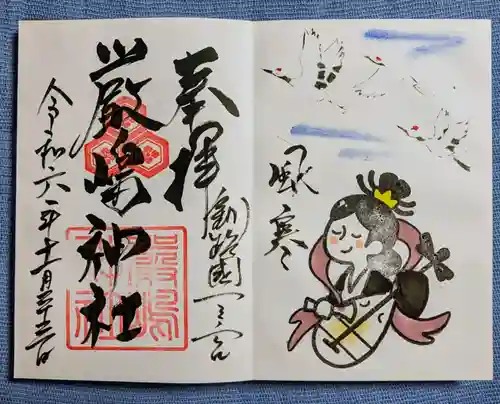 風寒
釧路國一之宮
奉拝
厳島神社
令和六年十一月二十三日